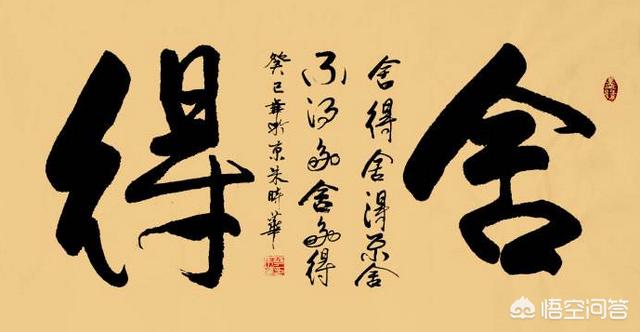 舍
舍得舍得不舍
不得能舍能得
癸巳年於京朱時華
得
悟空问答